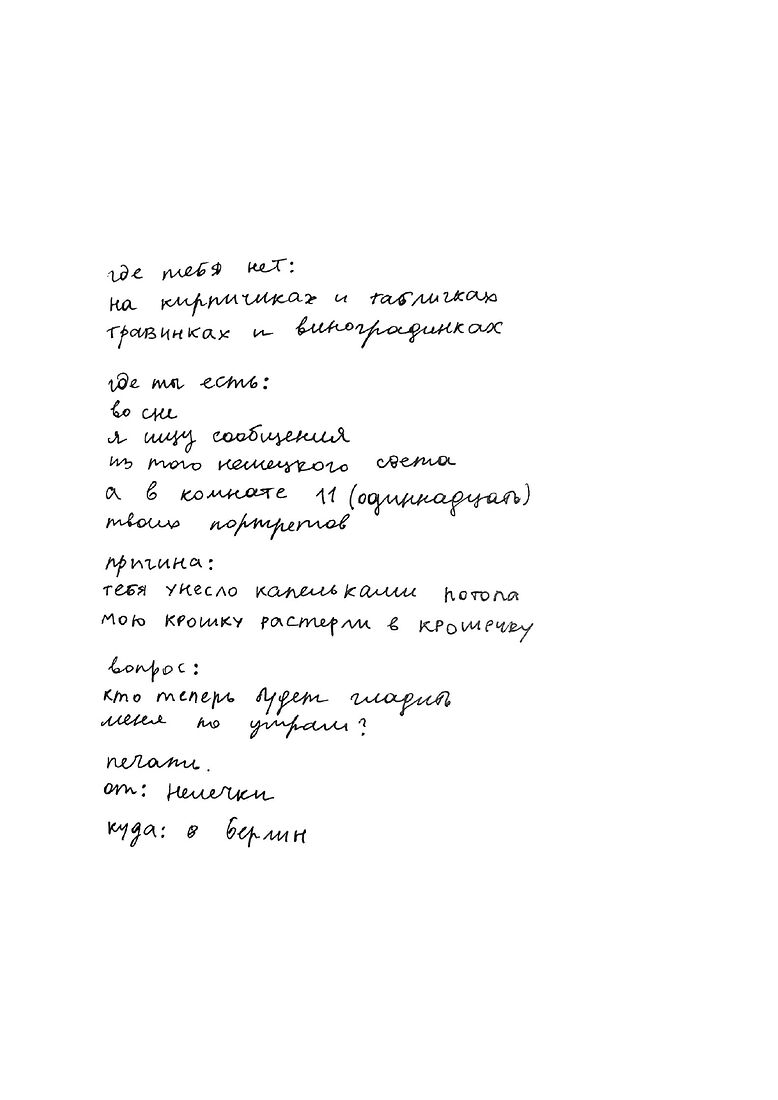 где тебя нет:
на кирпичиках и табличках
травинках и виноградинках
где ты есть:
во сне
я ищу сообщения
из того немецкого света
а в комнате 11 (одиннадцать)
твоих портретов
причина:
тебя унесло капельками потопа
мою крошку растерли в крошечку
вопрос:
кто теперь будет гладить
меня по утрам?
печати.
от: Немечки
куда: в берлин